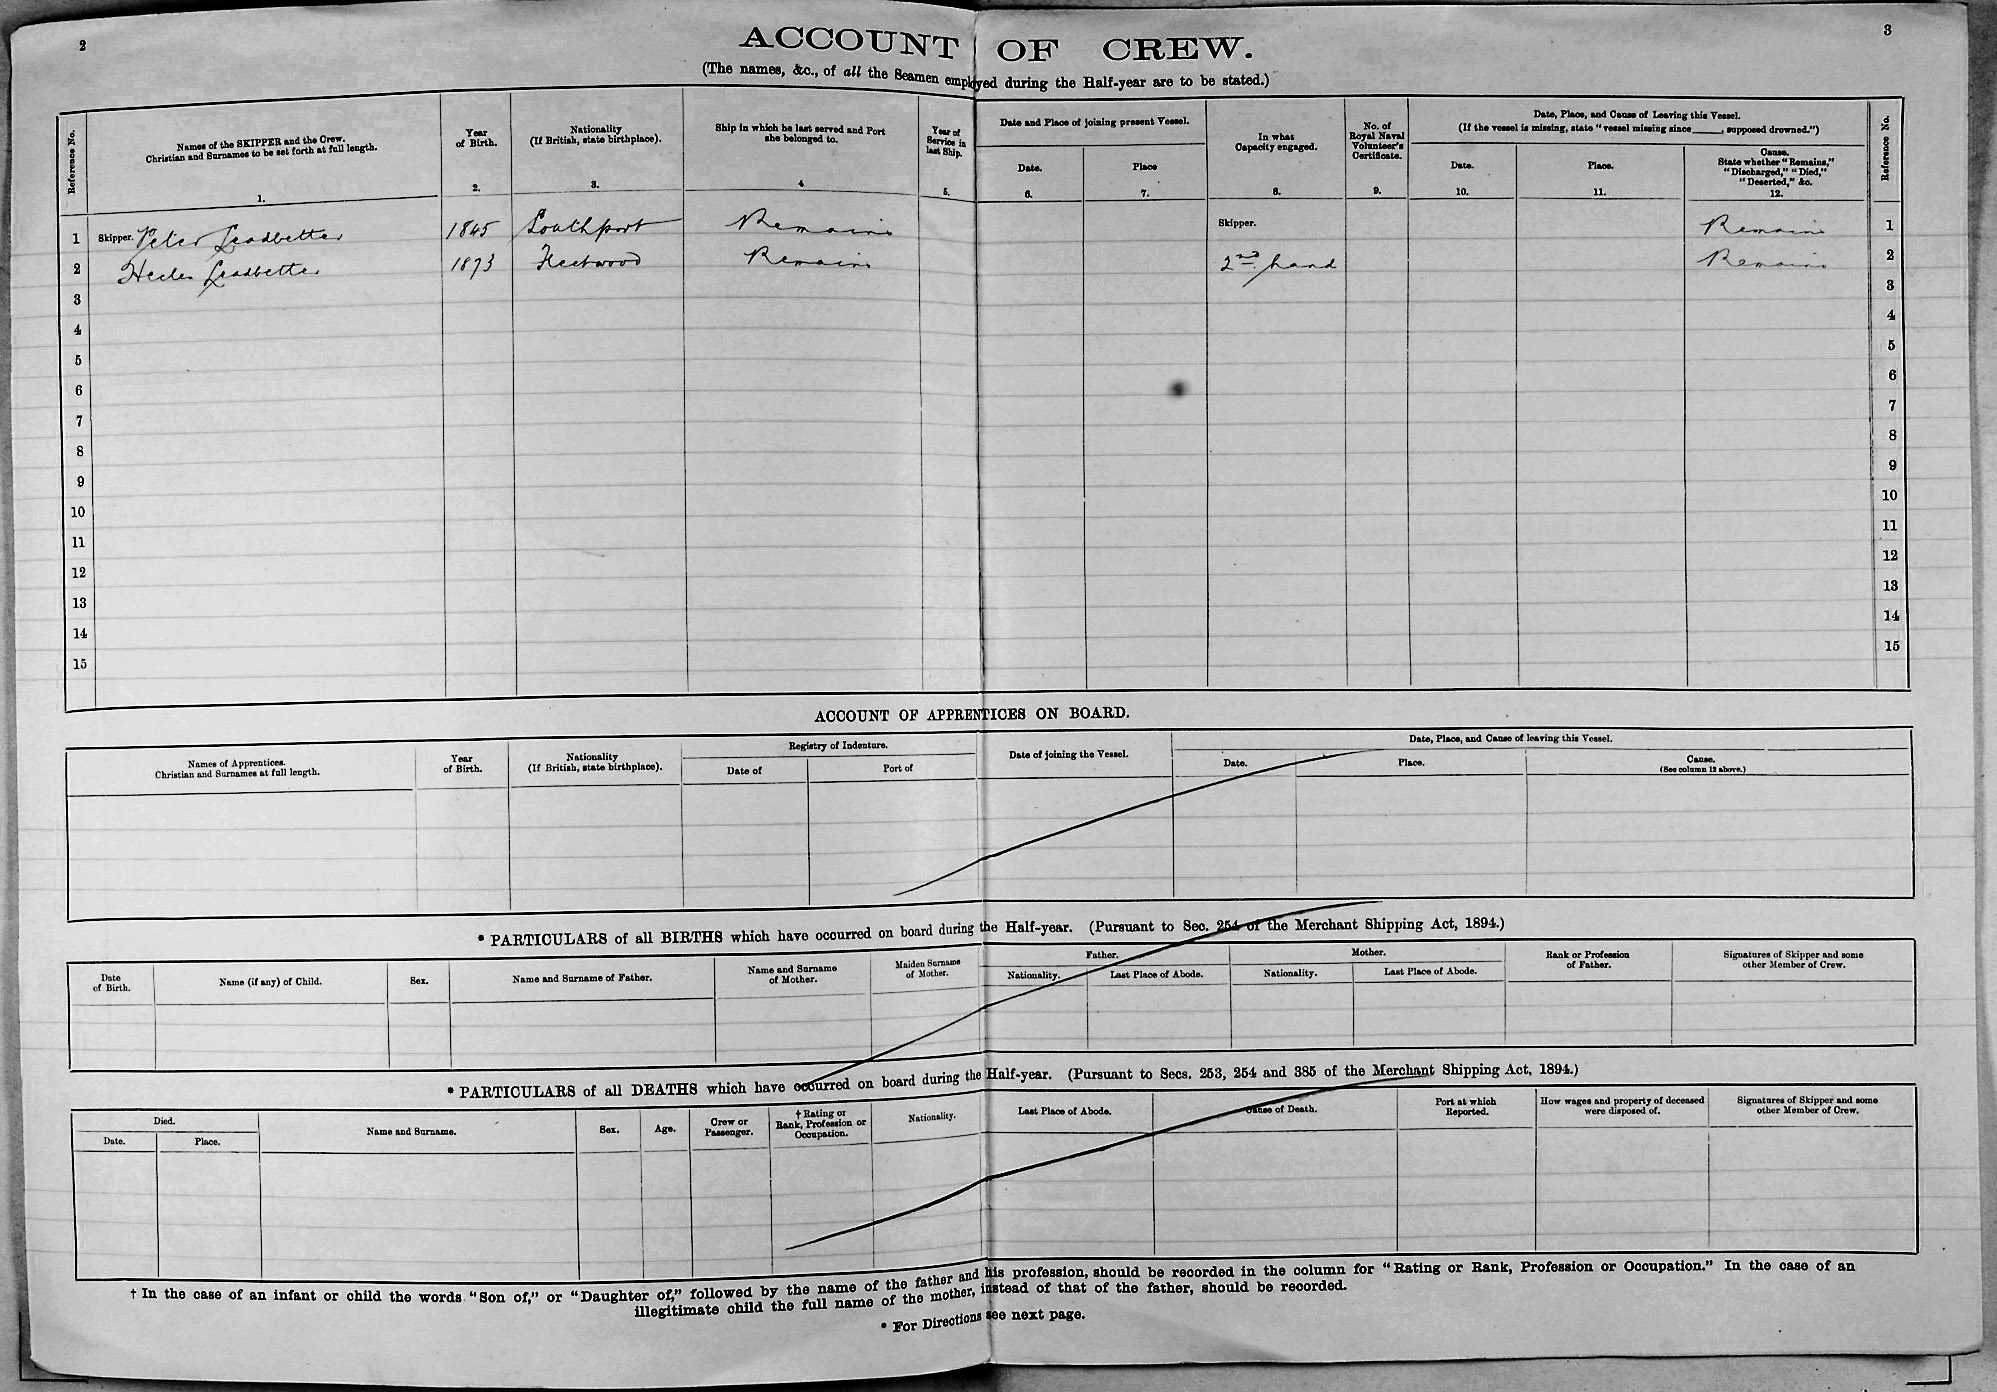 2
3
ACCOUNT OF CREW.
(The names, &c., of all the Seamen employed during the Half-year are to be stated.)
Reference No.
Names of the SKIPPER and the Crew.
Christian and Surnames to be set forth at full length.
1.
Year
of Birth.
2.
Nationality
(If British, state birthplace).
3.
Ship in which he last served and Port
she belonged to.
4.
Year of
Service in
last Ship.
5.
Date and Place of joining present Vessel.
Date.
6.
Place
7.
In what
Capacity engaged.
8.
No. of
Royal Naval
Volunteer's
Certificate.
9.
Date, Place, and Cause of Leaving this Vessel.
(If the vessel is missing, state "vessel missing since____, supposed drowned.")
Date.
10.
Place.
11.
Cause.
State whether "Remains,"
"Discharged," "Died,"
"Deserted," &c.
12.
Reference No.
1 Skipper. Peter Leadbetter 1845 Southport Remains Skipper. Remains 1
2 Leadbetter 1873 Fleetwood Remains 2nd hand Remains 2
3 3
4 4
5 5
6 6
7 7
8 8
9 9
10 10
11 11
12 12
13 13
14 14
15 15
ACCOUNT OF APPRENTICES ON BOARD.
Names of Apprentices.
Christian and Surnames at full length.
Year
of Birth.
Nationality
(If British, state birthplace).
Registry of Indenture.
Date of
Port of
Date of joining the Vessel.
Date, Place, and Cause of leaving this Vessel.
Date.
Place.
Cause.
(See column 12 above.)
* PARTICULARS of all BIRTHS which have occurred on board during the Half-year. (Pursuant to Sec. 254 of the Merchant Shipping Act, 1894.)
Date
of Birth.
Name (if any) of Child.
Sex.
Name and Surname of Father.
Name and Surname
of Mother.
Maiden Surname
of Mother.
Father.
Nationality.
Last Place of Abode.
Mother.
Nationality.
Last Place of Abode.
Rank or Profession
of Father.
Signatures of Skipper and some
other Member of Crew.
* PARTICULARS of all DEATHS which have occurred on board during the Half-year. (Pursuant to Secs. 253, 254 and 385 of the Merchant Shipping Act, 1894.)
Died.
Date.
Place.
Name and Surname.
Sex.
Age.
Crew or
Passenger.
† Rating or
Rank, Profession or
Occupation.
Nationality.
Last Place of Abode.
Cause of Death.
Port at which
Reported.
How wages and property of deceased
were disposed of.
Signatures of Skipper and some
other Member of Crew.
† In the case of an infant or child the words "Son of," or "Daughter of," followed by the name of the father and his profession, should be recorded in the column for "Rating or Rank, Profession or Occupation." In the case of an
illegitimate child the full name of the mother, instead of that of the father, should be recorded.
* For Directions see next page.